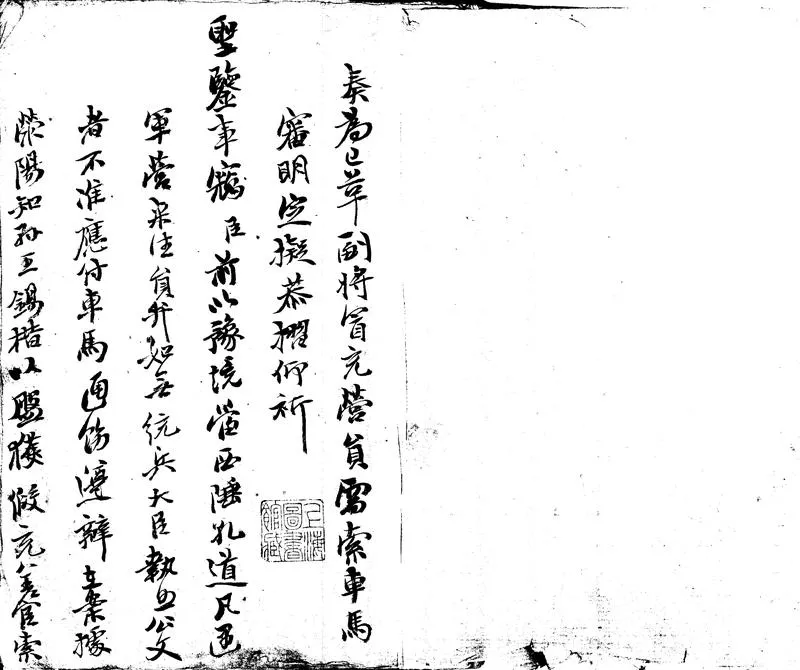 奏為已革副將冒充營員需索車馬
審明定擬恭摺仰祈
聖鑒事竊臣前以豫境當西陲孔道凡過
軍營來往員弁如無統兵大臣執照公文
者不准應付車馬通飭遵辦在案據
滎陽知縣王錫楷以盤獲假充差官索
上海圖書館藏